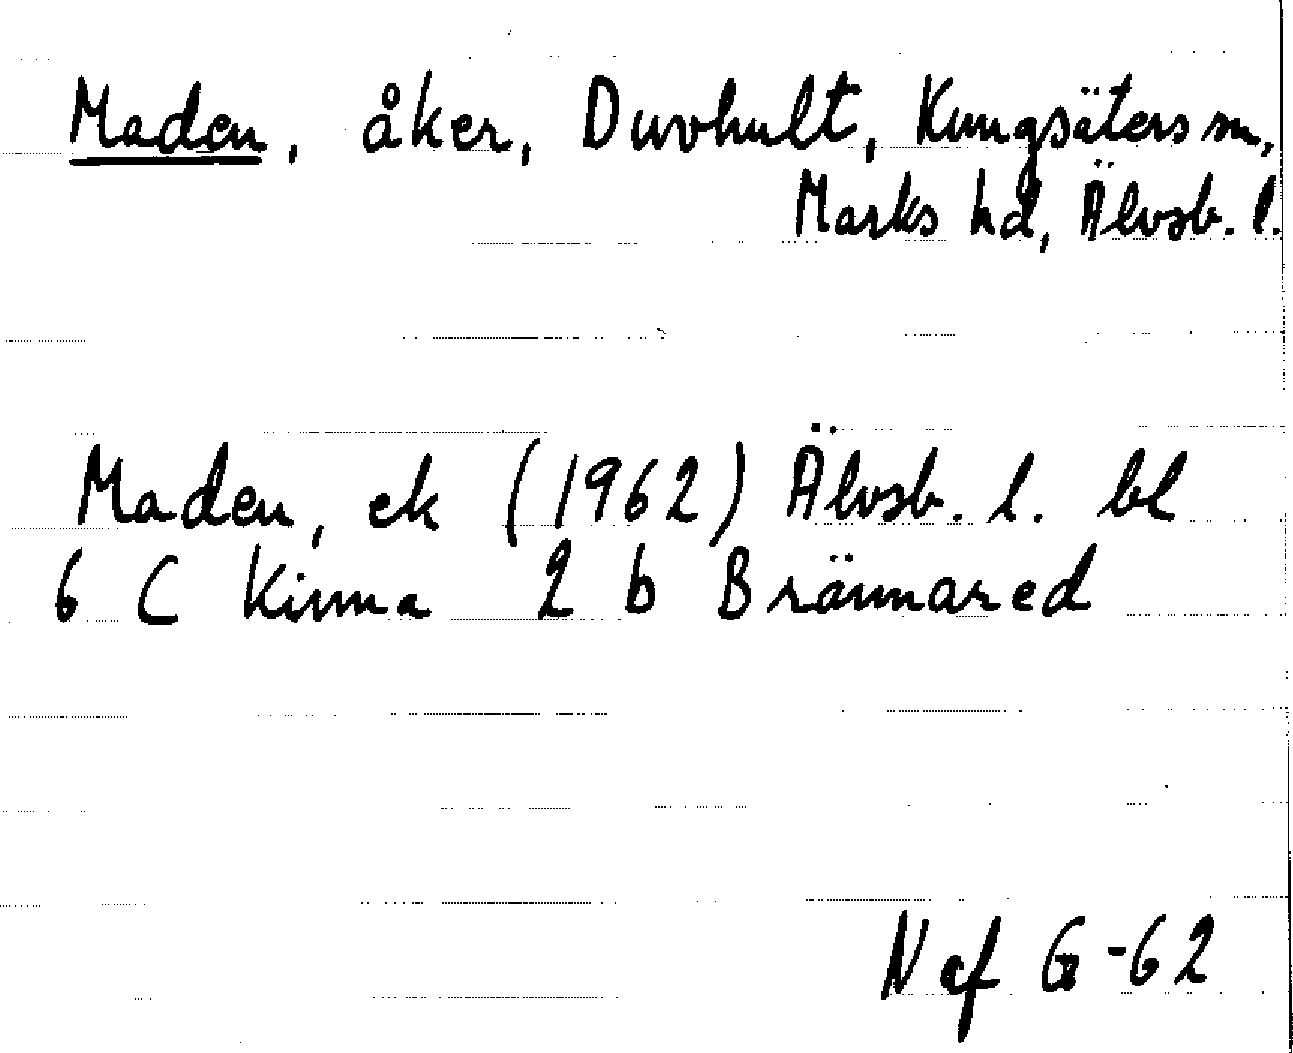 Maden, åker, Duvhult, Kungsäters sn,
Marks hd, Älvsb. l.
Maden, ek (1962) Älvsb. l. bl
6 C Kinna 2 b Brännared
N af G -62